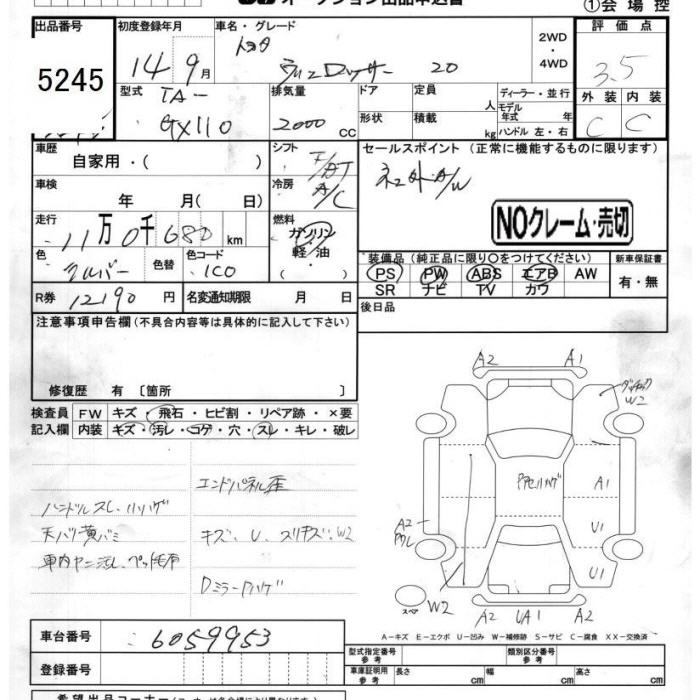 オークション出品申込書
①会場控
出品番号
5245
初度登録年月
14年9月
車名・グレード
トヨタ
20
2WD・4WD
評価点
3.5
外装 内装
C C
型式
TA-
GX110
排気量
2000 cc
ドア
定員 人
形状
積載 kg
ディーラー・並行
モデル年式 年
ハンドル 左・右
車歴
自家用・( )
シフト
冷房
A/C
車検
年 月( 日)
走行
11万0千680km
燃料
ガソリン・軽油・( )
色
シルバー
色替
色コード
1C0
R券
12190円
名変通知期限 月 日
セールスポイント (正常に機能するものに限ります)
NOクレーム・売切
装備品(純正品に限り○をつけてください)
PS PW ABS エアB AW
SR ナビ TV カワ
新車保証書
有・無
後日品
注意事項申告欄(不具合内容等は具体的に記入して下さい)
修復歴 有 [箇所 ]
検査員記入欄
FW キズ・飛石・ヒビ割・リペア跡・×要
内装 キズ・汚レ・コゲ・穴・スレ・キレ・破レ
エンドパネル歪
ハンドルスレ、ハゲ
天バリ黄バミ
キズ、U、スリキズ、W2
車内ヤニ汚レ、ペット毛有
Dミラーハゲ
A2 A1
W2
A1
A2
U1
U1
スペア
W2
A2 UA1 A2
A-キズ E-エクボ U-凹み W-補修跡 S-サビ C-腐食 XX-交換済
車台番号
6059953
登録番号
型式指定番号 参考
類別区分番号 参考
車庫証明用 参考
長さ cm
幅 cm
高さ cm
希望出品コーナー